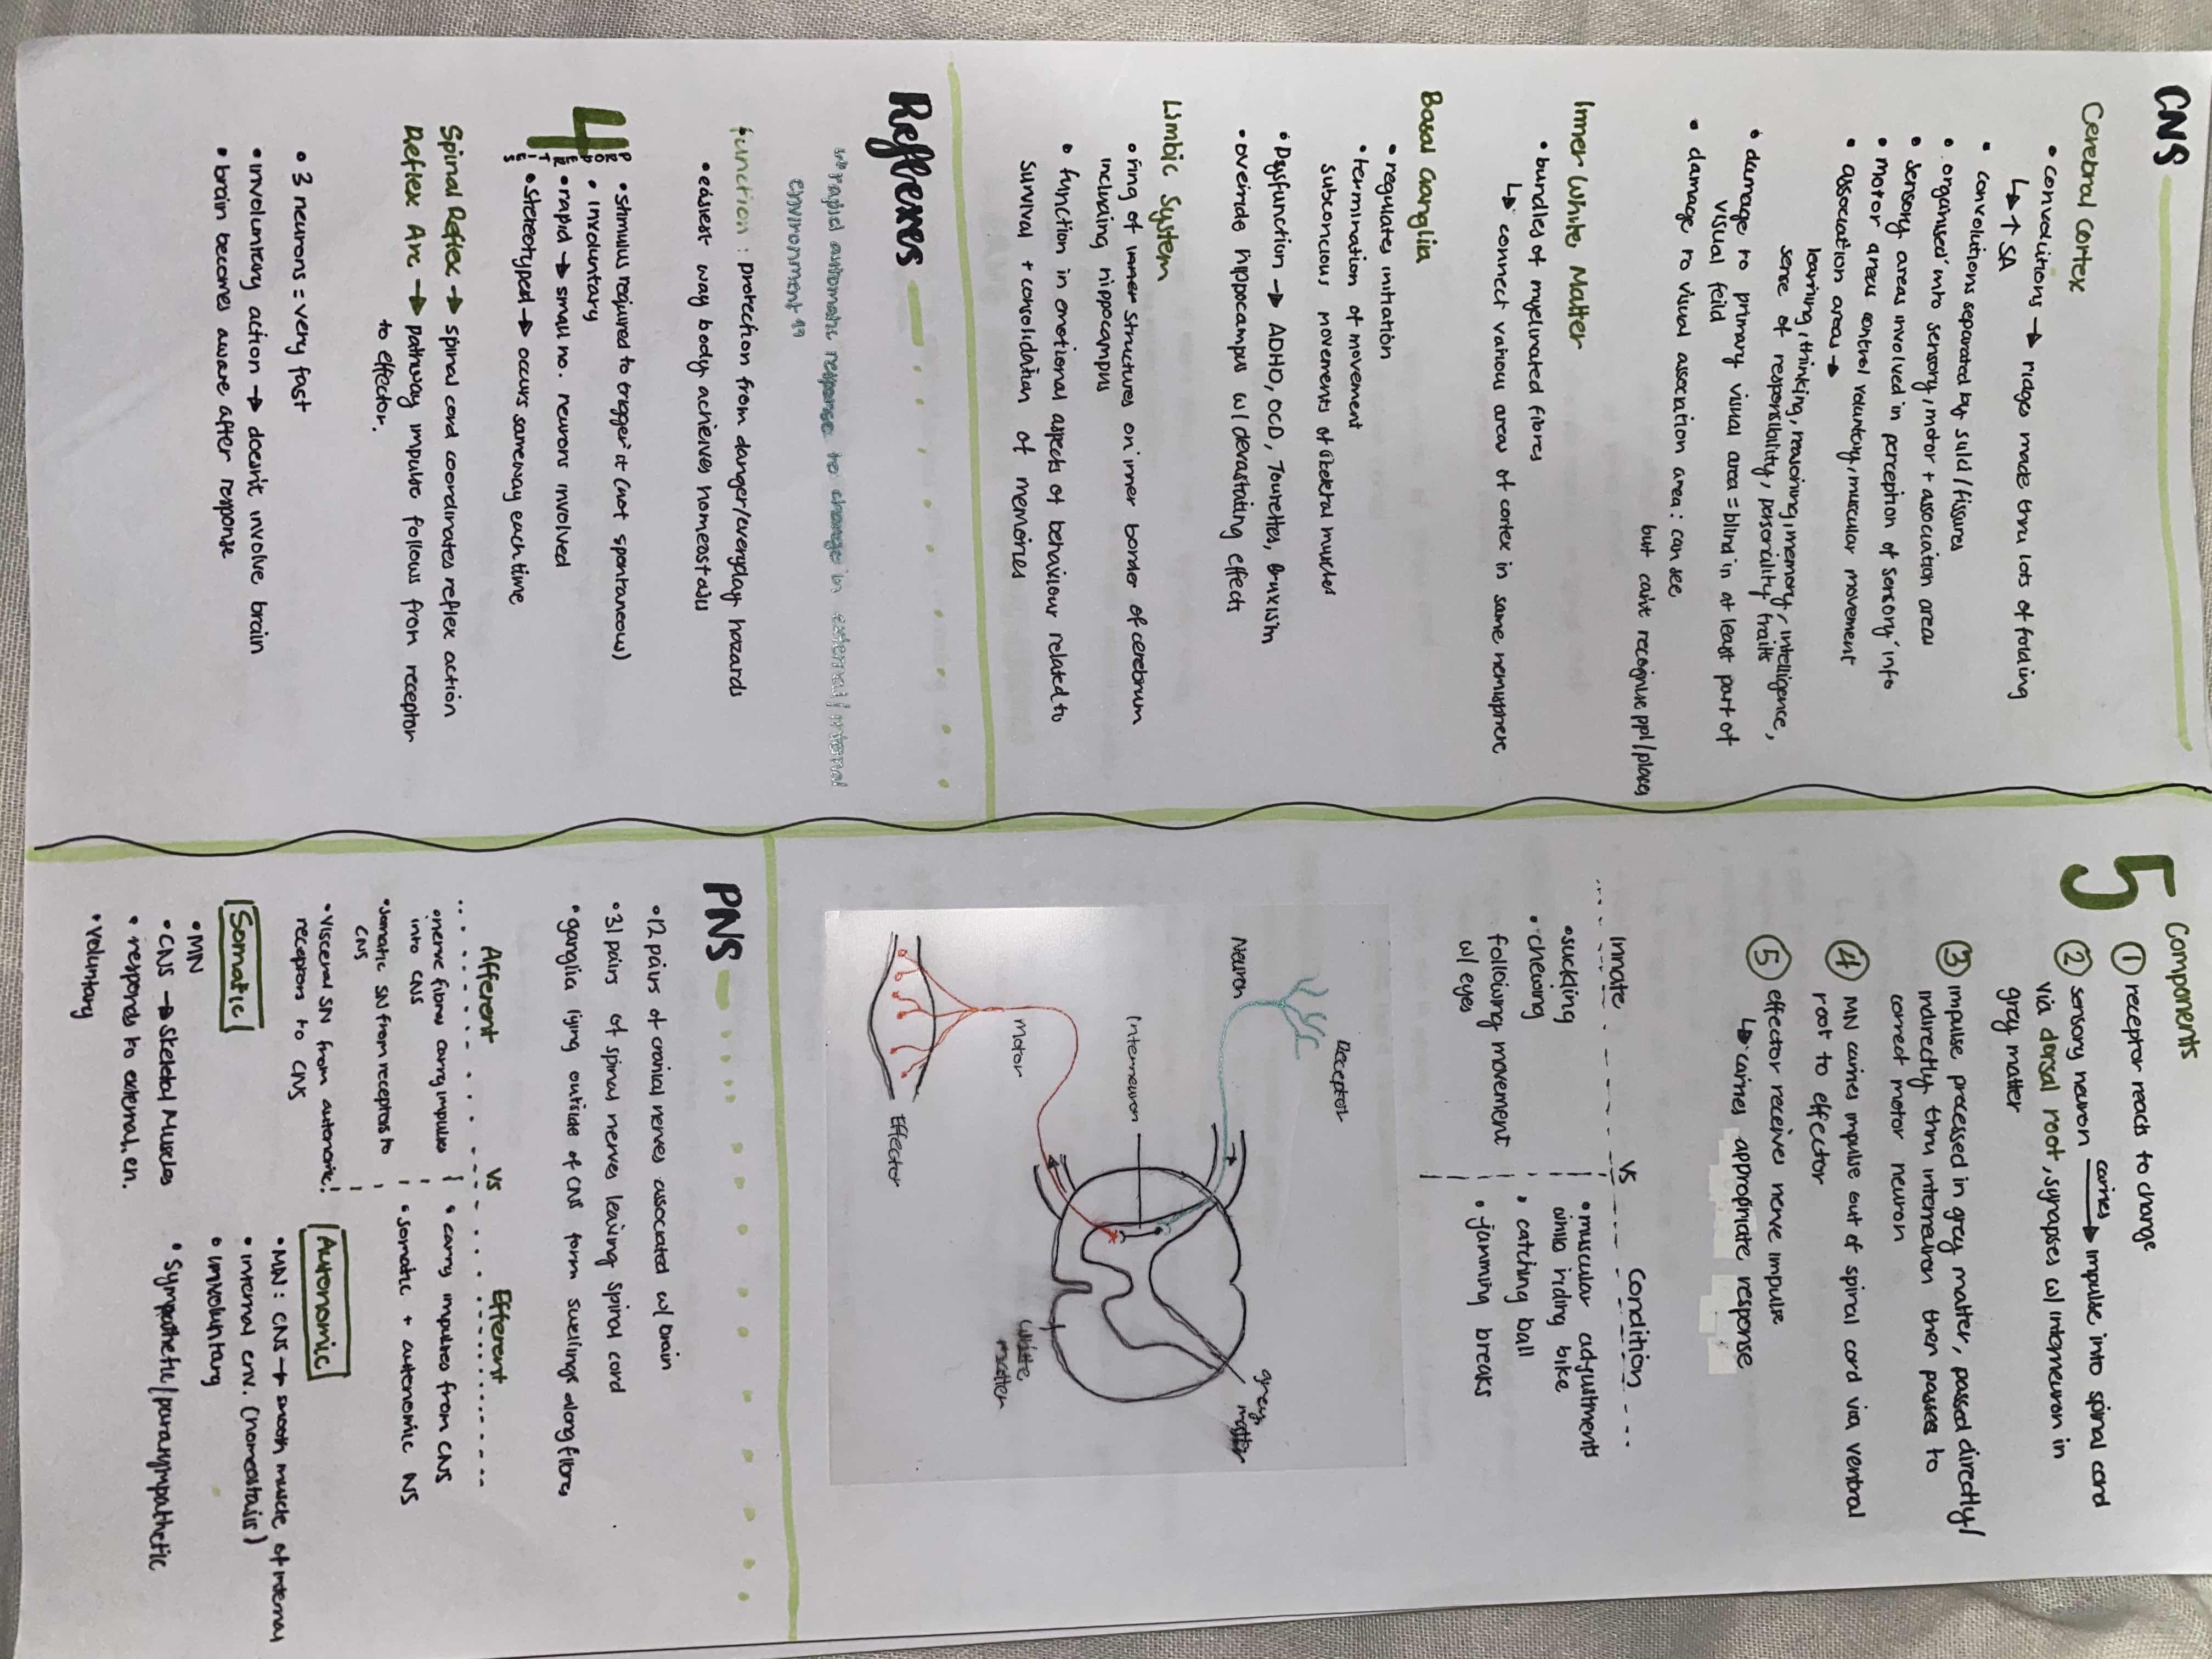 CNS
Cerebral Cortex
• convolutions → ridges made thru lots of folding
↳ ↑ SA
• convolutions separated by sulci/fissures
• organised into sensory, motor + association areas
• sensory areas involved in perception of sensory info
• motor areas control voluntary, muscular movement
• association areas →
learning, thinking, reasoning, memory, intelligence,
sense of responsibility, personality traits
• damage to primary visual area = blind in at least part of
visual feild
• damage to visual association area: can see
but can't recognise ppl/places
Inner White Matter
• bundles of myelinated fibres
↳ connect various areas of cortex in same hemisphere
Basal Ganglia
• regulates initiation
• termination of movement
subconcious movements of skeletal muscles
• Dysfunction → ADHD, OCD, Tourettes, Bruxism
• overide hippocampus w/ devastating effects
Limbic System
• ring of structures on inner border of cerebrum
including hippocampus
• function in emotional aspects of behaviour related to
survival + consolidation of memories
Reflexes
"rapid automatic response to change in external/internal
environment"
function: protection from danger/everyday hazards
• easiest way body achieves homeostasis
4 PROPERTIES
• stimulus required to trigger it (not spontaneous)
• involuntary
• rapid → small no. neurons involved
• stereotyped → occurs same way each time
Spinal Reflex → spinal cord coordinates reflex action
Reflex Arc → pathway impulse follows from receptor
to effector.
• 3 neurons = very fast
• involuntary action → doesn't involve brain
• brain becomes aware after response
5 Components
① receptor reacts to change
② sensory neuron carries → impulse into spinal cord
via dorsal root, synapses w/ interneuron in
grey matter
③ impulse processed in grey matter, passed directly/
indirectly thru interneuron then passes to
correct motor neuron
④ MN carries impulse out of spinal cord via ventral
root to effector
⑤ effector receives nerve impulse
↳ carries appropriate response
Innate vs Condition
• suckling
• chewing
following movement
w/ eyes
• muscular adjustments
while riding bike
• catching ball
• jamming breaks
Receptor
Neuron
grey
matter
Interneuron
white
matter
Motor
Effector
PNS
• 12 pairs of cranial nerves associated w/ brain
• 31 pairs of spinal nerves leaving spinal cord
• ganglia lying outside of CNS form swellings along fibres
Afferent vs Efferent
• nerve fibres carry impulses
into CNS
• somatic SN from receptors to
CNS
• visceral SN from autonomic
receptors to CNS
• carry impulses from CNS
• somatic + autonomic NS
Somatic
• MN
• CNS → skeletal Muscles
• responds to external en.
• voluntary
Autonomic
• MN: CNS → smooth muscle of internal
• internal env. (homeostasis)
• involuntary
• sympathetic/parasympathetic